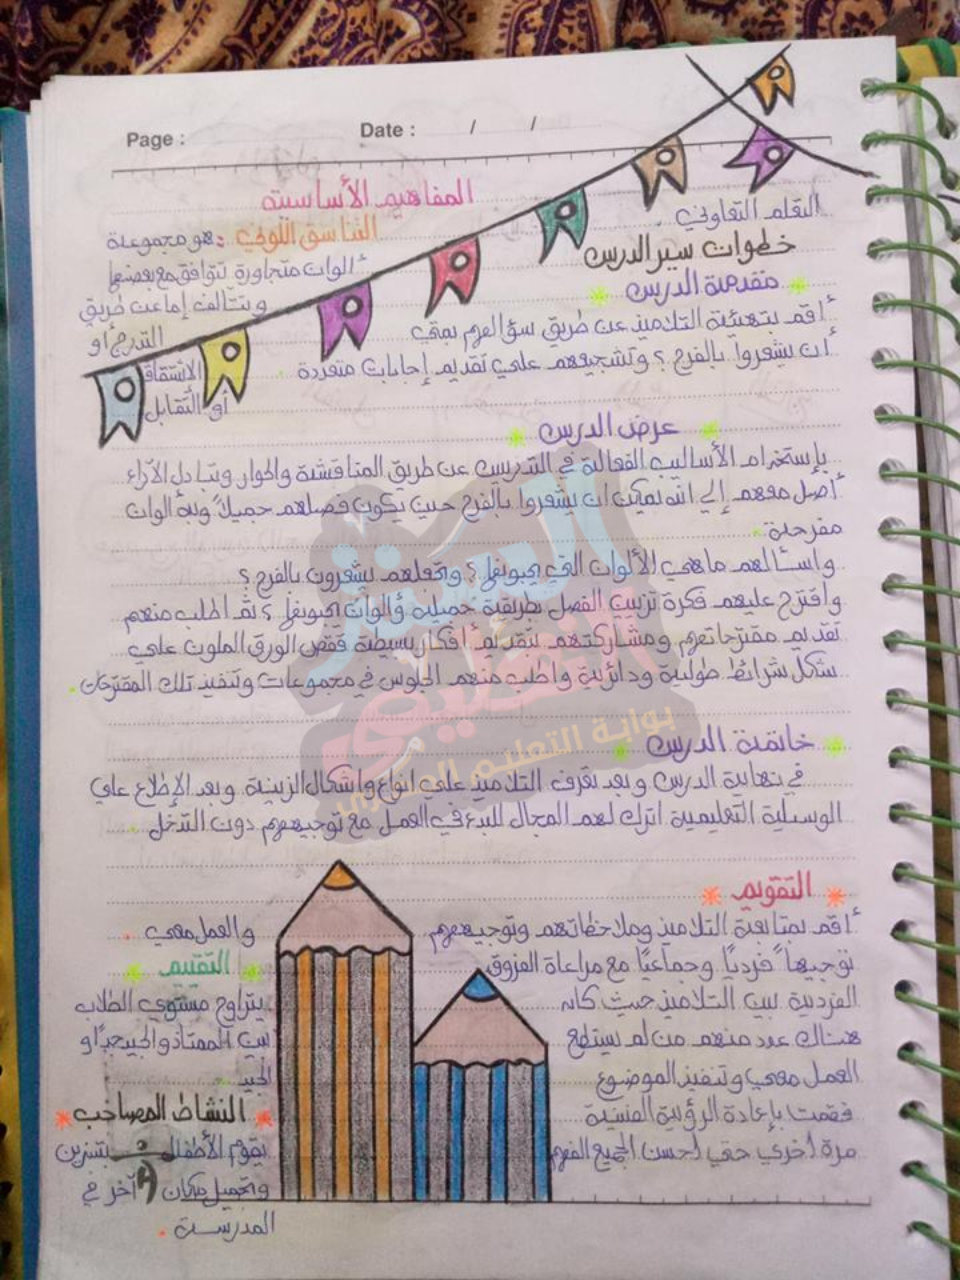 Page :
Date : / /
التعلم التعاوني .
خطوات سير الدرس
مقدمة الدرس
أقم بتهيئة التلاميذ عن طريق سؤالهم بمتي
أن يشعروا بالفرح ؟ وتشجيعهم علي تقديم إجابات متعددة .
المفاهيم الأساسية
التناسق اللوني : هو مجموعة
ألوان متجاورة تتوافق مع بعضها
وتتألف إما عن طريق
التدرج أو
الاشتقاق
أو التقابل
عرض الدرس
بإستخدام الأساليب الفعالة في التدريس عن طريق المناقشة والحوار وتبادل الآراء
أصل معهم إلي أنه يمكن ان يشعروا بالفرح حين يكون فصلهم جميلاً وبه ألوان
مفرحة .
واسألهم ماهي الألوان التي يحبونها ؟ وتجعلهم يشعرون بالفرح ؟
وأقترح عليهم فكرة تزيين الفصل بطريقة جميلة وألوان يحبونها ؟ ثم اطلب منهم
تقديم مقترحاتهم ومشاركتهم بتقديم أفكار بسيطة كقص الورق الملون علي
شكل شرائط طولية ودائرية واطلب منهم الجلوس في مجموعات وتنفيذ تلك المقترحات .
خاتمة الدرس
في نهاية الدرس وبعد تعرف التلاميذ علي انواع واشكال الزينة وبعد الإطلاع علي
الوسيلة التعليمية اترك لهم المجال للبدء في العمل مع توجيههم دون التدخل .
التقويم
أقم بمتابعة التلاميذ وملاحظاتهم وتوجيههم
توجيهاً فرديًا وجماعيًا مع مراعاة الفروق
الفردية بين التلاميذ حيث كان
هناك عدد منهم من لم يستطع
العمل معي وتنفيذ الموضوع
فقمت بإعادة الرؤية الفنية
مرة أخري حتي أحسن الجميع الفهم
والعمل معي .
التقييم
يتراوح مستوي الطلاب
بين الممتاز والجيد جدًا و
الجيد .
النشاط المصاحب
يقوم الأطفال بتزيين
وتجميل مكان آخر في
المدرسة .
السنتر
التعليمي
بوابة التعليم المصري